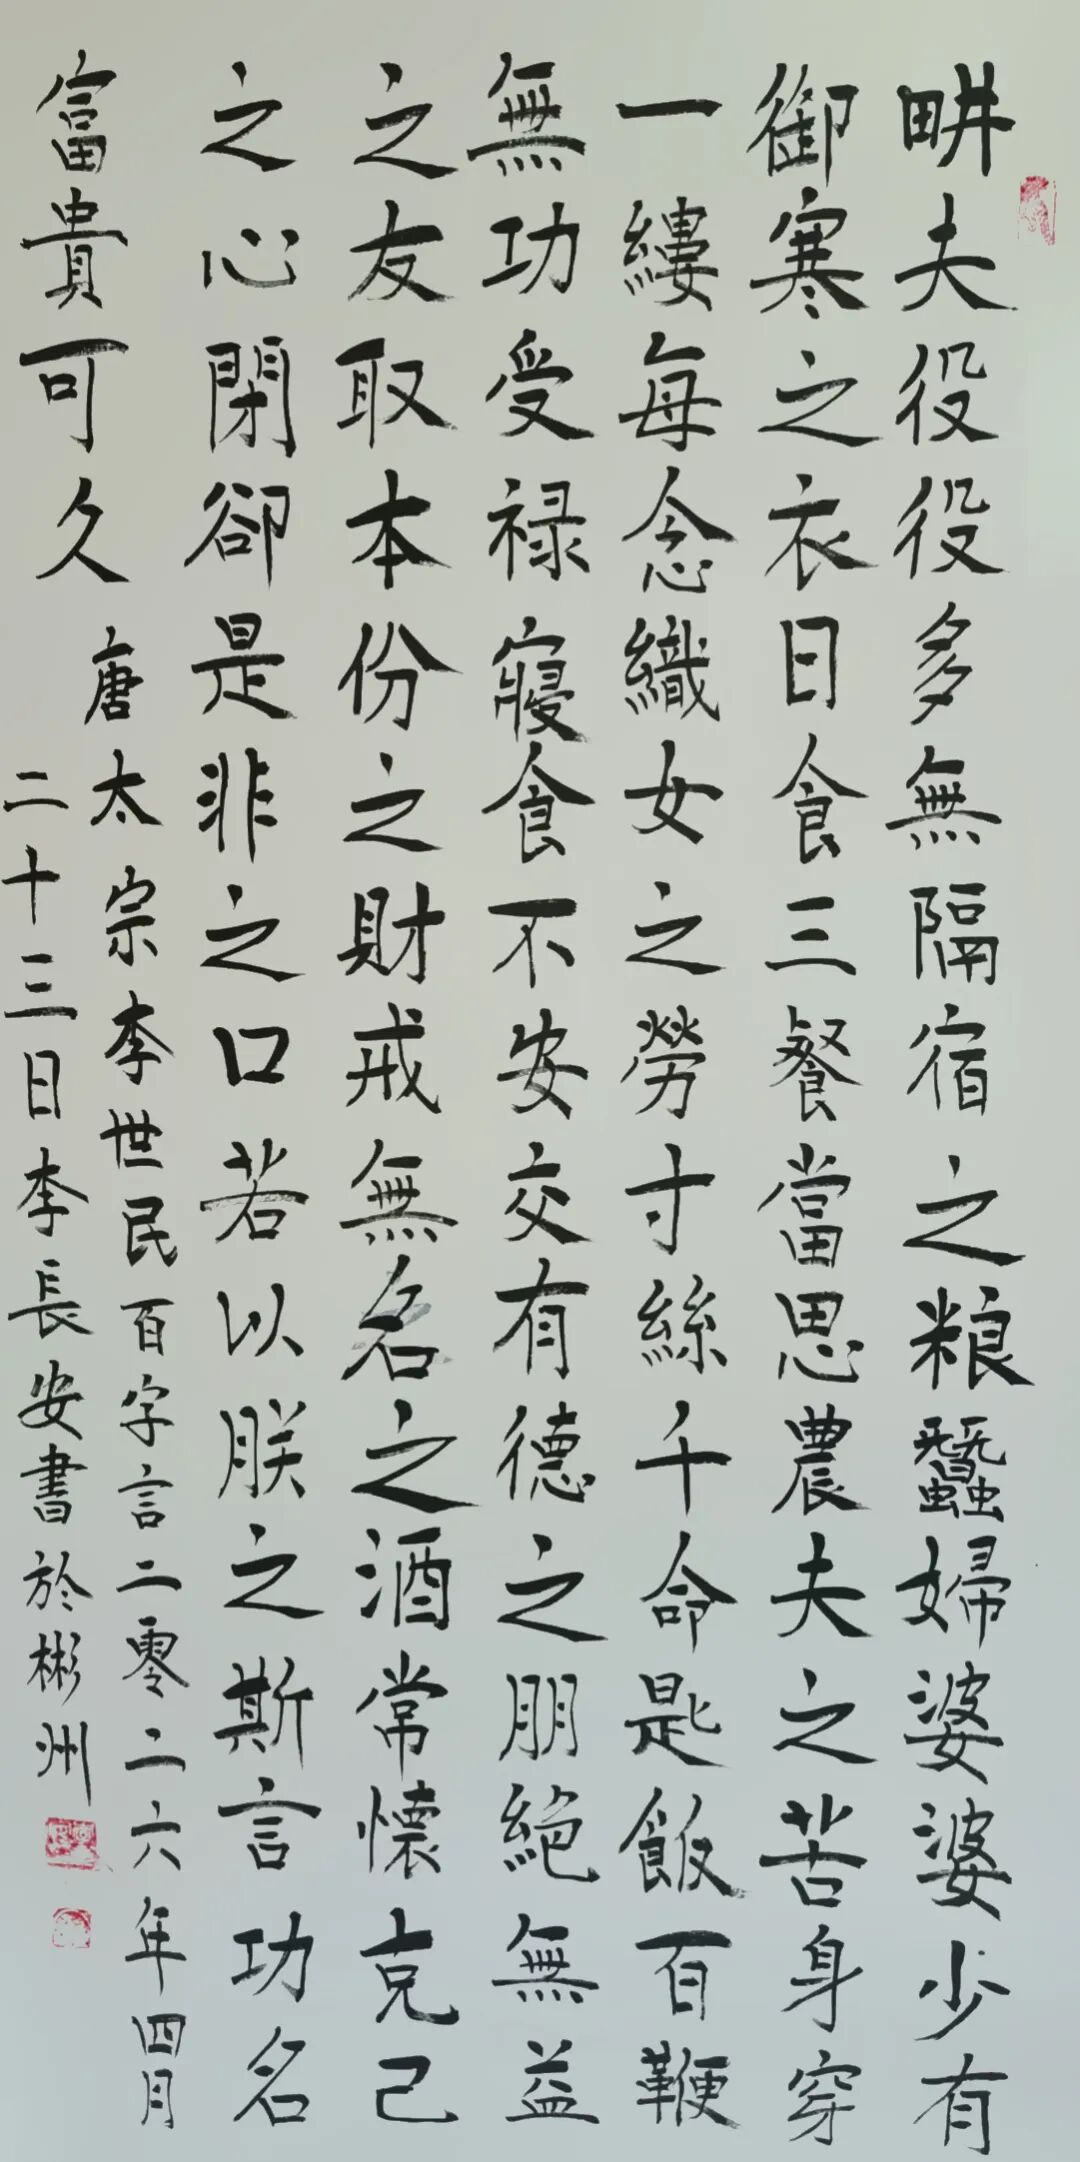 畊夫役役多無隔宿之粮蠶婦婆婆少有
御寒之衣日食三餐當思農夫之苦身穿
一縷每念織女之勞寸絲千命匙飯百鞭
無功受禄寢食不安交有德之朋絕無益
之友取本份之財戒無名之酒常懷克己
之心閉卻是非之口若以朕之斯言功名
富貴可久
唐太宗李世民百字言二零二六年四月
二十三日李長安書於彬州